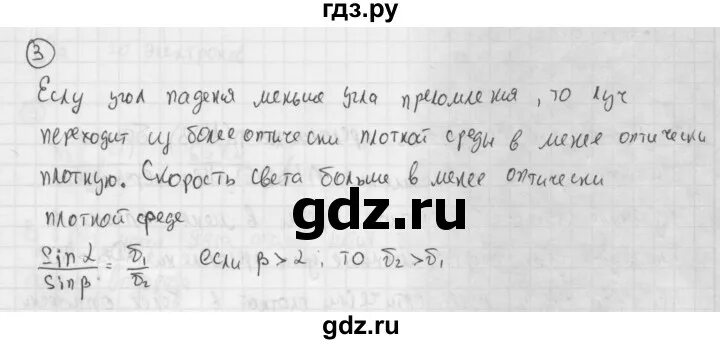 гдз.ру
3
Еслу угол паденя меньше угла преломления, то луч
переходит из более оптически плоткой среды в менее оптически
плотную. Скорость света больше в менее оптически
gdz.ru
плоткой среде
sin α / sin β = v₁ / v₂ если β > α, то v₂ > v₁
gdz.ru